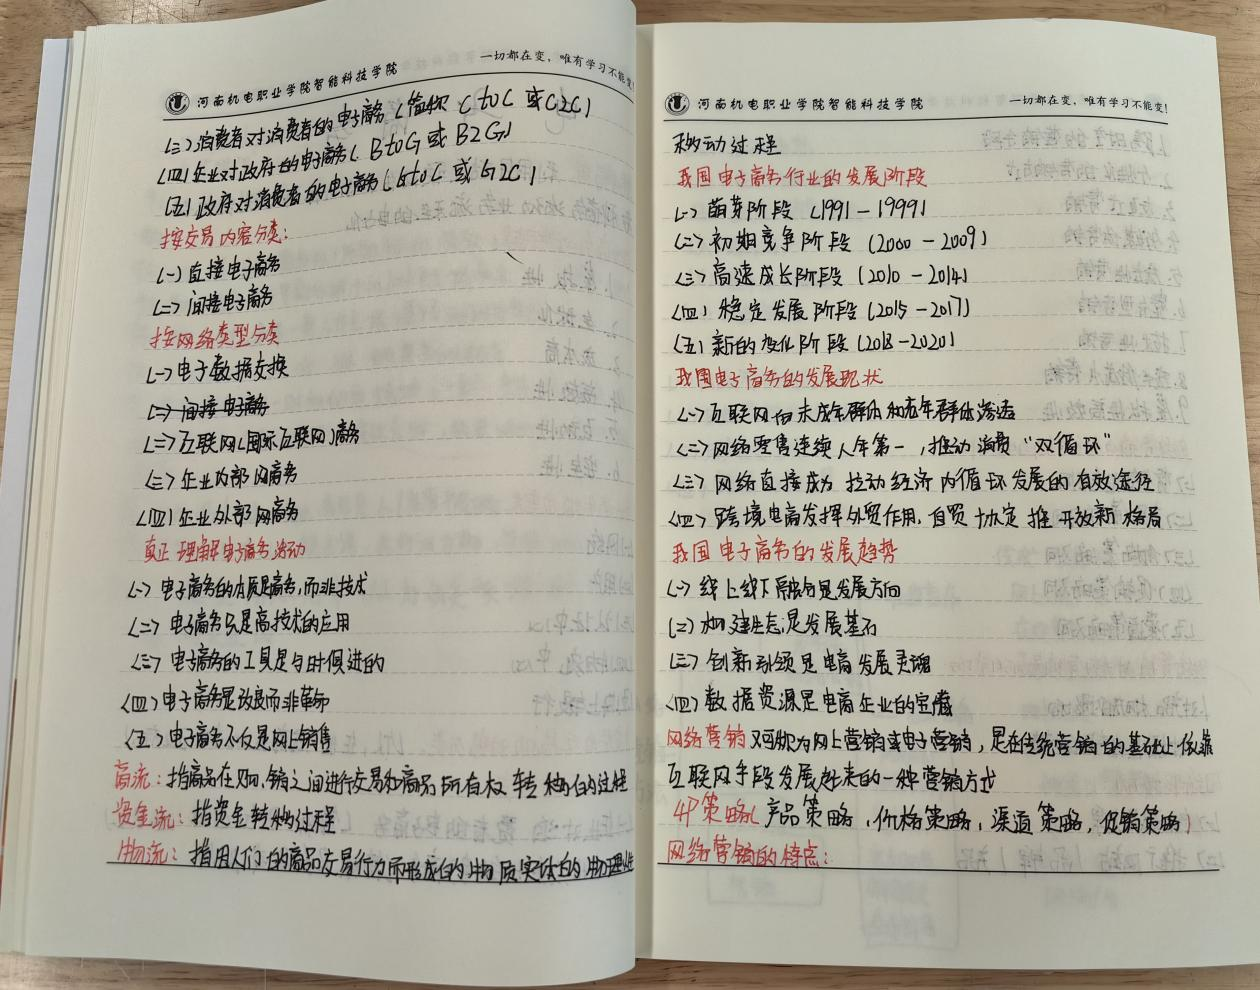 河南机电职业学院智能科技学院 一切都在变，唯有学习不能变!
(三)消费者对消费者的电子商务(简称 C to C 或 C2C)
(四)企业对政府的电子商务( B to G 或 B2G)
(五)政府对消费者的电子商务(G to C 或 G2C)
按交易内容分类:
(一)直接电子商务
(二)间接电子商务
按网络类型分类
(一)电子数据交换
(二)间接电子商务
(二)互联网(国际互联网)商务
(三)企业内部网商务
(四)企业外部网商务
真正理解电子商务活动
(一)电子商务的本质是商务,而非技术
(二)电子商务只是高技术的应用
(三)电子商务的工具是与时俱进的
(四)电子商务是改良而非革命
(五)电子商务不仅是网上销售
商流:指商品在购、销之间进行交易和商品所有权转移的的过程
资金流:指资金转移过程
物流:指因人们的商品交易行为而形成的物质实体的物理性
河南机电职业学院智能科技学院 一切都在变，唯有学习不能变!
移动过程
我国电子商务行业的发展阶段
(一)萌芽阶段 (1991-1999)
(二)初期竞争阶段 (2000-2009)
(三)高速成长阶段 (2010-2014)
(四)稳定发展阶段 (2015-2017)
(五)新的变化阶段 (2018-2020)
我国电子商务的发展现状
(一)互联网向未成年群体和老年群体渗透
(二)网络零售连续八年第一,推动消费“双循环”
(三)网络直接成为拉动经济内循环发展的有效途径
(四)跨境电商发挥外贸作用,自贸协定推开放新格局
我国电子商务的发展趋势
(一)线上线下融合是发展方向
(二)构建生态是发展基石
(三)创新引领是电商发展灵魂
(四)数据资源是电商企业的宝藏
网络营销又可称为网上营销或电子营销,是在传统营销的基础上依靠
互联网手段发展起来的一种营销方式
4P策略(产品策略,价格策略,渠道策略,促销策略)
网络营销的特点: